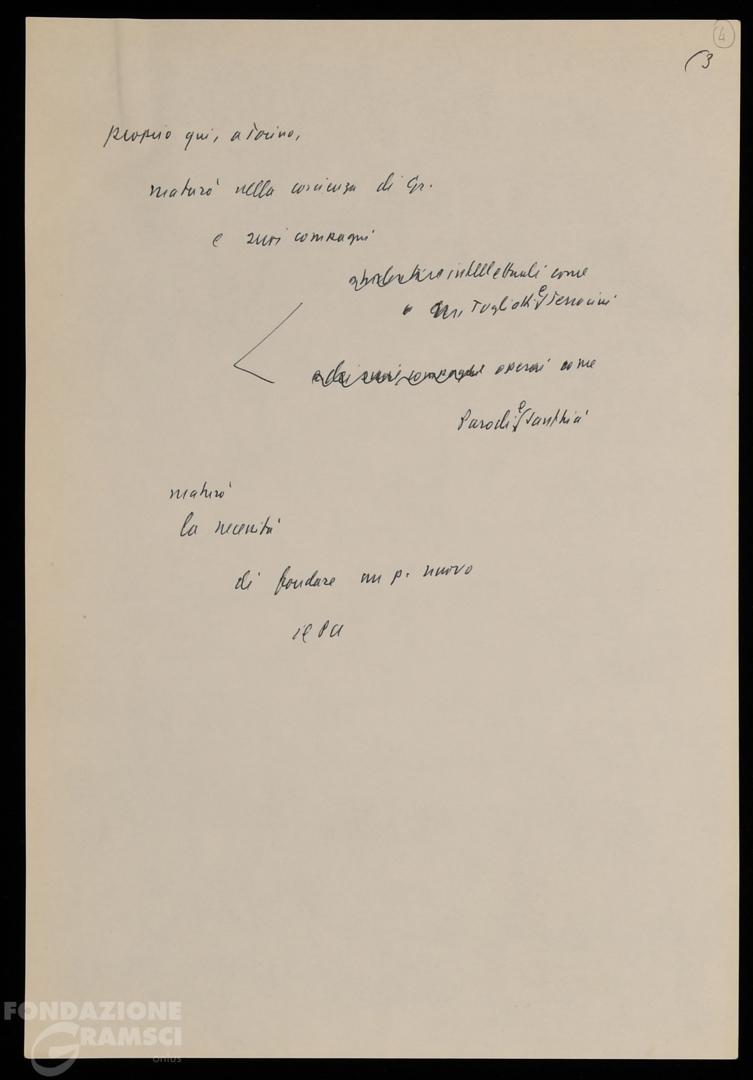 4
3
proprio qui, a Torino,
maturò nella coscienza di Gr.
e suoi compagni
intellettuali come
Togliatti e Terracini
operai come
Parodi e Santhià
maturò
la necessità
di fondare un p. nuovo
il PCI
FONDAZIONE
GRAMSCI
onlus